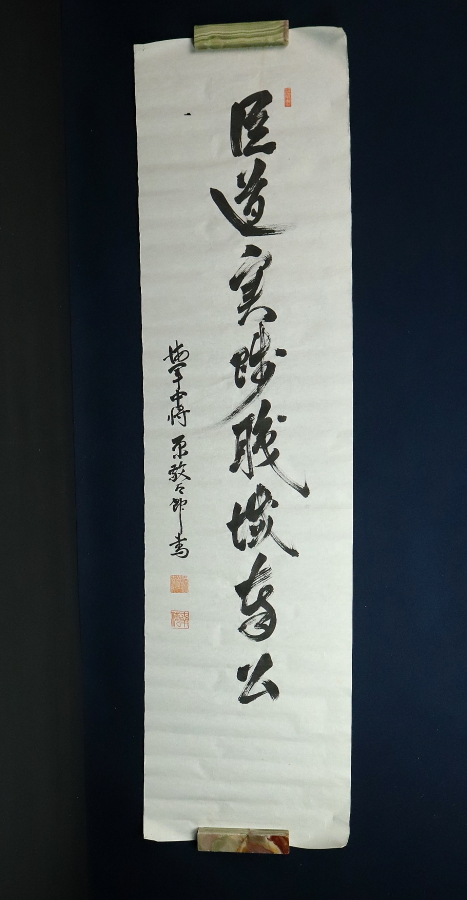 臣道実践職域奉公
海軍中将 原敬太郎書